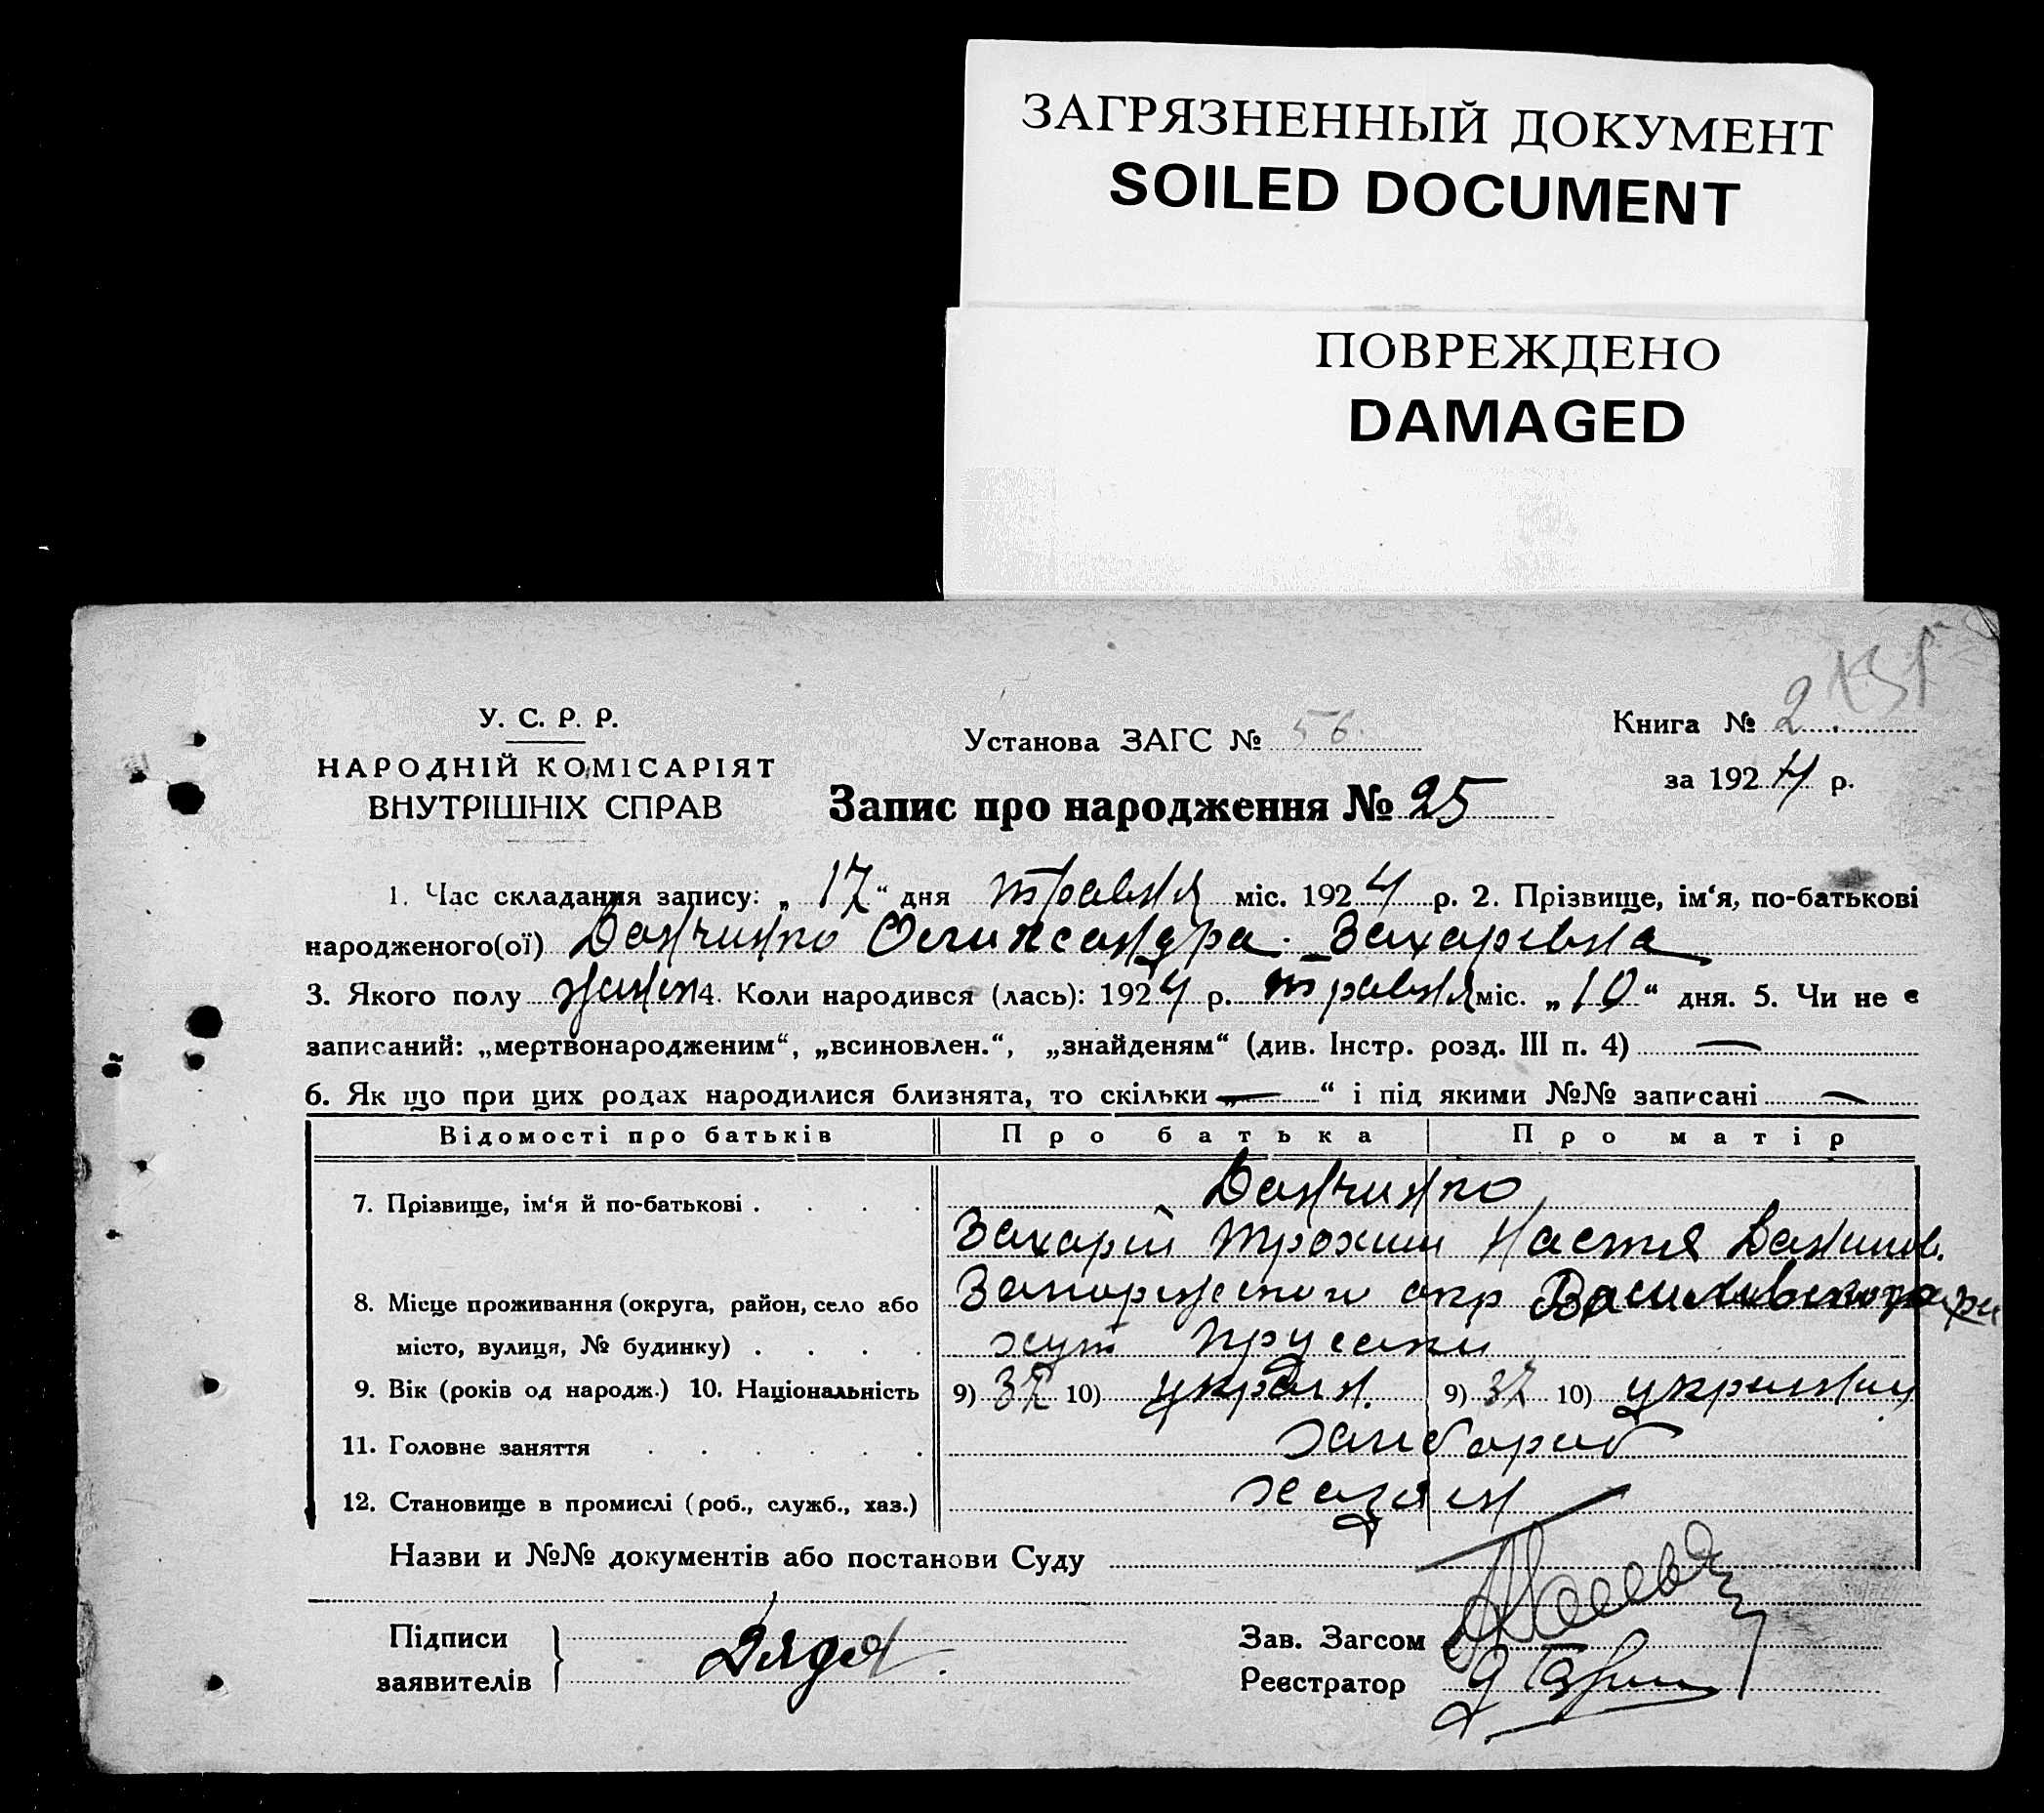 ЗАГРЯЗНЕННЫЙ ДОКУМЕНТ
SOILED DOCUMENT
ПОВРЕЖДЕНО
DAMAGED
131
У. С. Р. Р.
НАРОДНІЙ КОМІСАРІЯТ
ВНУТРІШНІХ СПРАВ
Установа ЗАГС № 56.
Книга № 2
за 1924 р.
Запис про народження № 25
1. Час складання запису: „17“ дня травня міс. 1924 р. 2. Прізвище, ім‘я, по-батькові
народженого(ої) Данчинко Олександра Захаревна
3. Якого полу жіноч 4. Коли народився (лась): 1924 р. травня міс. „10“ дня. 5. Чи не є
записаний: „мертвонародженим“, „всиновлен.“, „знайденям“ (див. Інстр. розд. III п. 4) —
6. Як що при цих родах народилися близнята, то скільки „—“ і під якими №№ записані —
Відомості про батьків Про батька Про матір
7. Прізвище, ім‘я й по-батькові . . . . Данчинко
Захарій Трохим Настя Данилов.
8. Місце проживання (округа, район, село або Запоріжського окр Василівського рай
місто, вулиця, № будинку) . . . . хут
9. Вік (років од народж.) 10. Національність 9) 37 10) україн. 9) 37 10)
11. Головне заняття . . . . . . хлібороб
12. Становище в промислі (роб., служб., хаз.) хазяїн
Назви и №№ документів або постанови Суду
Підписи
заявителів }
Зав. Загсом
Реєстратор